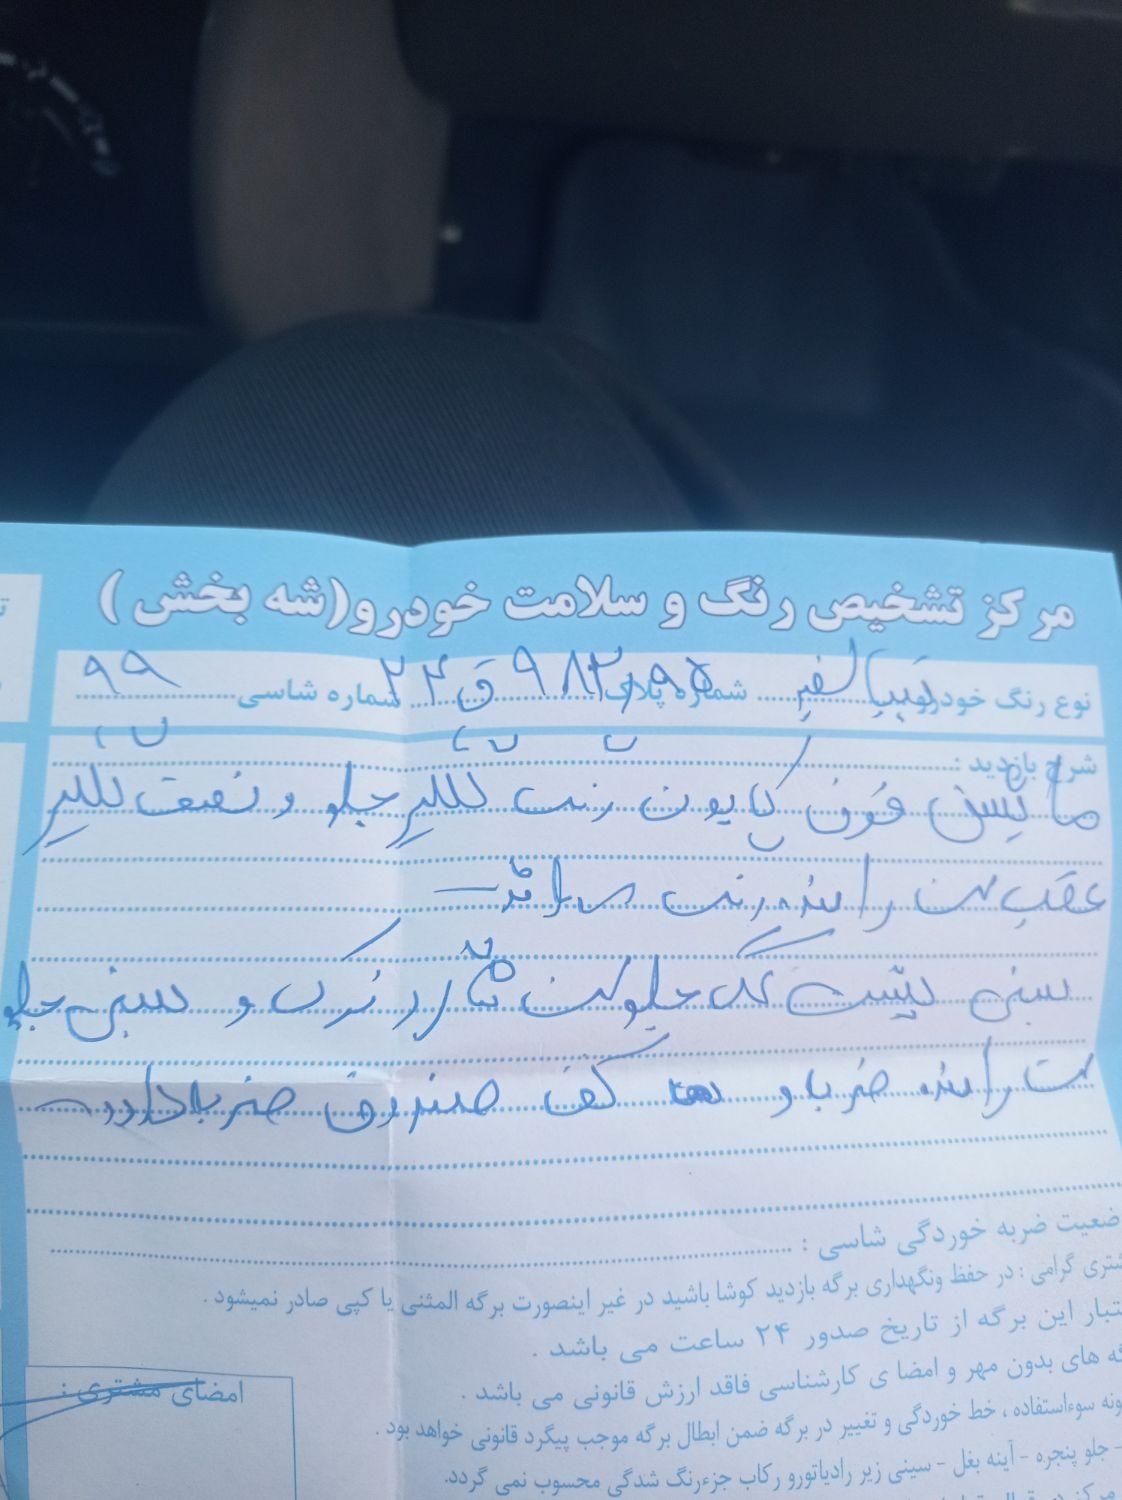 مرکز تشخیص رنگ و سلامت خودرو(شه بخش)
نوع رنگ خودرو: تیبا سفید شماره پلاک ۹۸۳ ق ۲۴ شماره شاسی ۹۹
شرح بازدید :
ماشین فوق کاپوت رنگ گلگیر جلو و نصف گلگیر
عقب سمت راننده رنگ
سینی پشت جلو سمت شاگرد رنگ و سینی جلو
سمت راننده ضربه و کف صندوق ضربه دارد
ضعیت ضربه خوردگی شاسی :
شتری گرامی : در حفظ ونگهداری برگه بازدید کوشا باشید در غیر اینصورت برگه المثنی یا کپی صادر نمیشود .
تبار این برگه از تاریخ صدور ۲۴ ساعت می باشد .
گه های بدون مهر و امضا ی کارشناسی فاقد ارزش قانونی می باشد .
ونه سوءاستفاده ، خط خوردگی و تغییر در برگه ضمن ابطال برگه موجب پیگرد قانونی خواهد بود .
- جلو پنجره - آینه بغل - سینی زیر رادیاتورو رکاب جزءرنگ شدگی محسوب نمی گردد.
امضای مشتری :